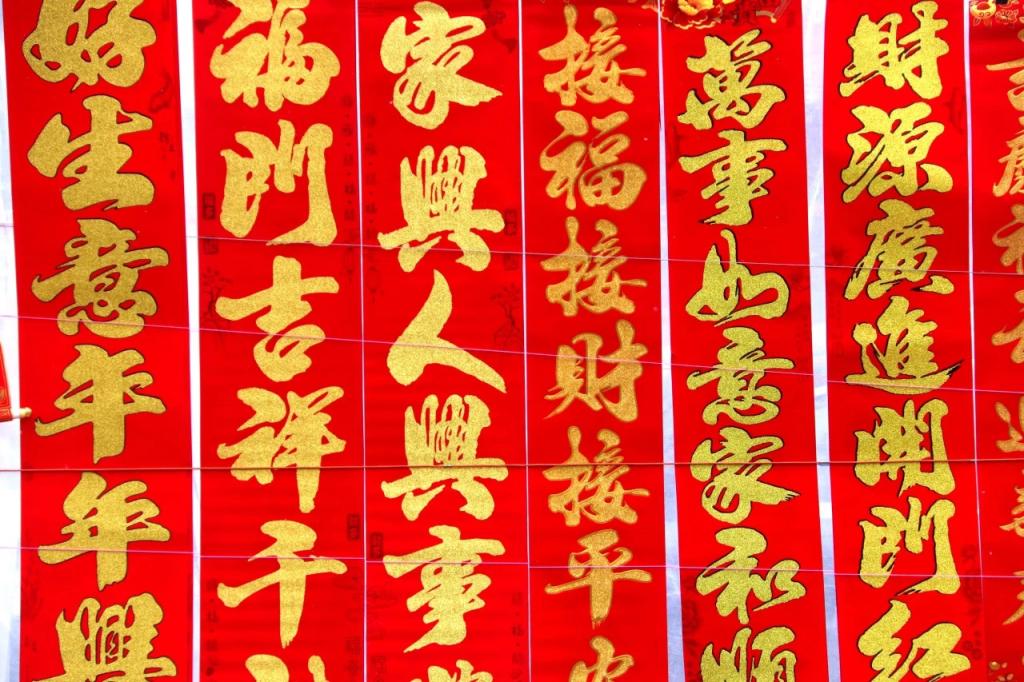 財源廣進開門紅
萬事如意家和順
接福接財接平
家興人興事
福門吉祥千
好生意年年興